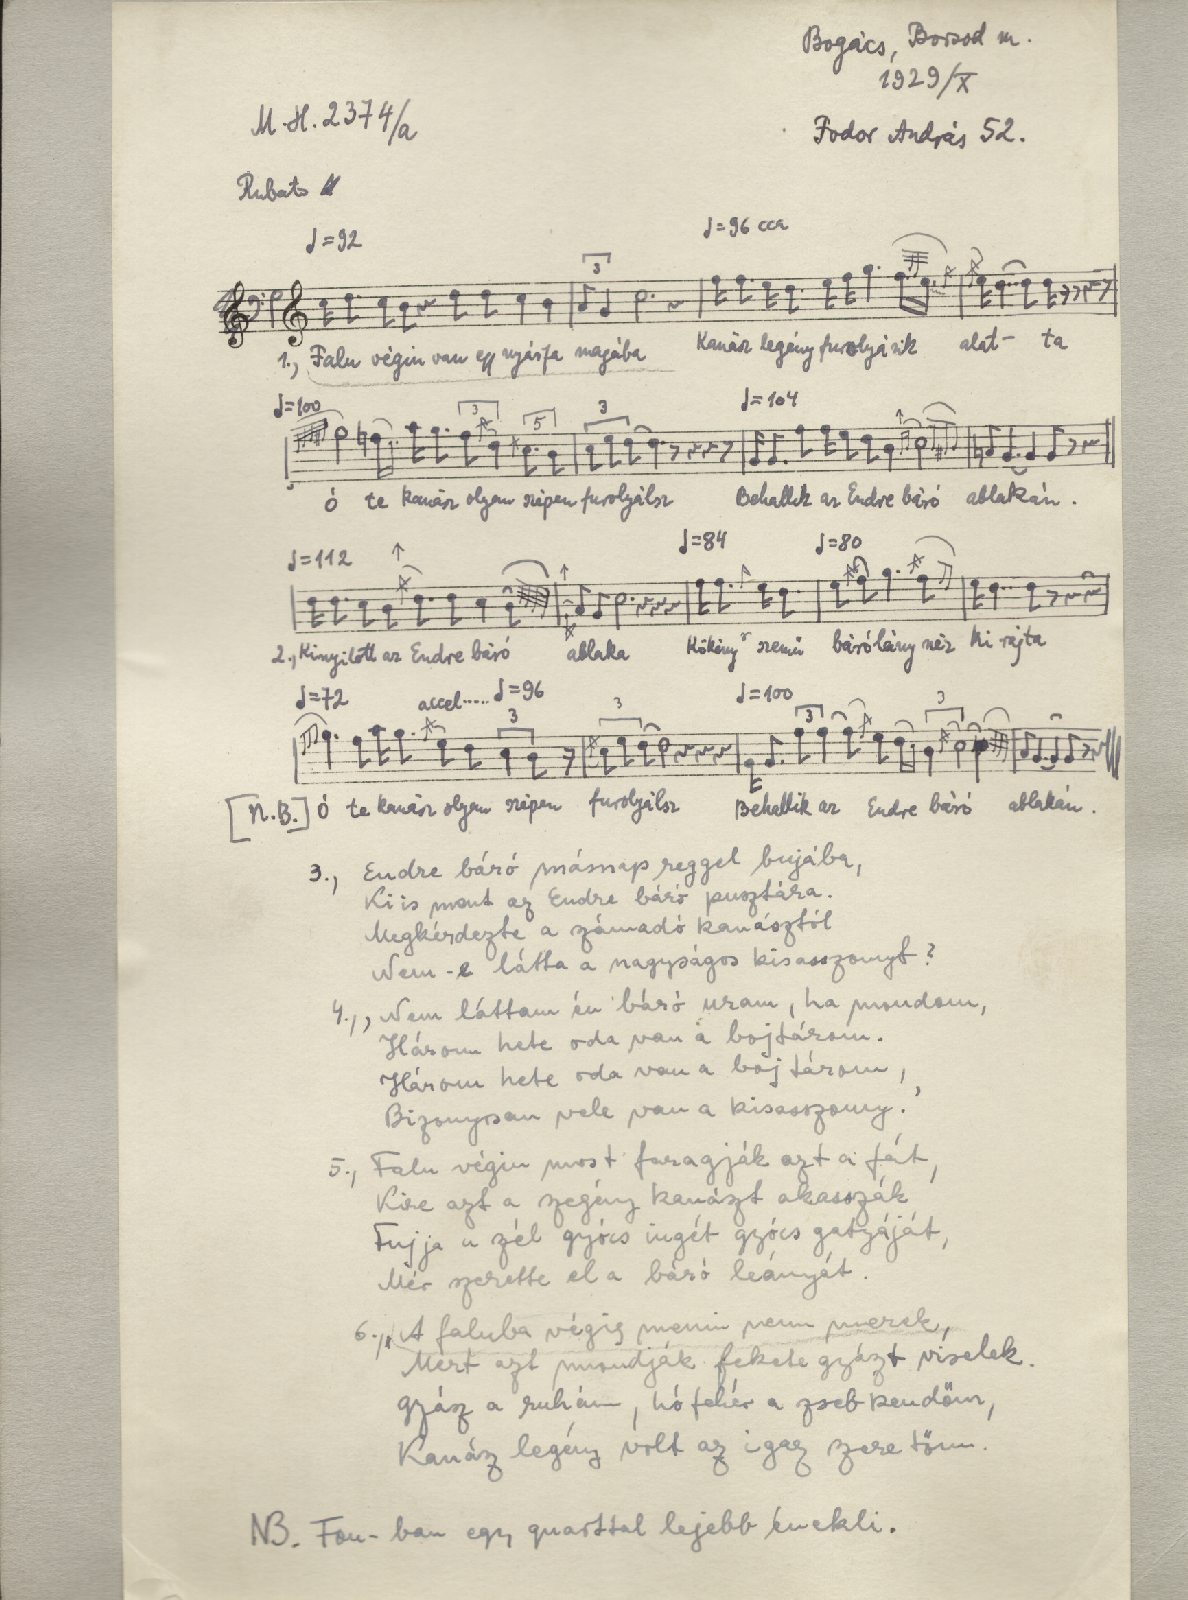 Bogács, Borsod m.
1929/X
M.H. 2374/a
Fodor András 52.
Rubato
♩=92
♩=96 cca
3
1., Falu végin van egy nyásfa magába Kanász legény furolyázik alat- ta
♩=100
3
5
3
♩=104
Ó te kanász olyan szépen furolyálsz Behallik az Endre báró ablakán.
♩=112
♩=84
♩=80
2., Kinyilott az Endre báró ablaka Kökény szemű báró lány néz ki rajta
♩=72
accel......
♩=96
3
3
♩=100
3
3
[N.B.] Ó te kanász olyan szépen furolyálsz Behallik az Endre báró ablakán.
3., Endre báró másnap reggel bujába,
Ki is ment az Endre báró pusztára.
Megkérdezte a számadó kanásztól
Nem-e látta a nagyságos kisasszonyt?
4., Nem láttam én báró uram, ha mondom,
Három hete oda van a bojtárom.
Három hete oda van a bojtárom,
Bizonyosan vele van a kisasszony.
5., Falu végin most faragják azt a fát,
Kire azt a szegény kanászt akasszák
Fujja a szél gyócs ingét gyócs gatyáját,
Mér szerette el a báró leányát.
6., A faluba végig menni nem merek,
Mert azt mondják fekete gyászt viselek.
gyász a ruhám, hófehér a zsebkendőm,
Kanász legény volt az igaz szeretőm.
NB. Fon-ban egy quarttal lejebb énekli.